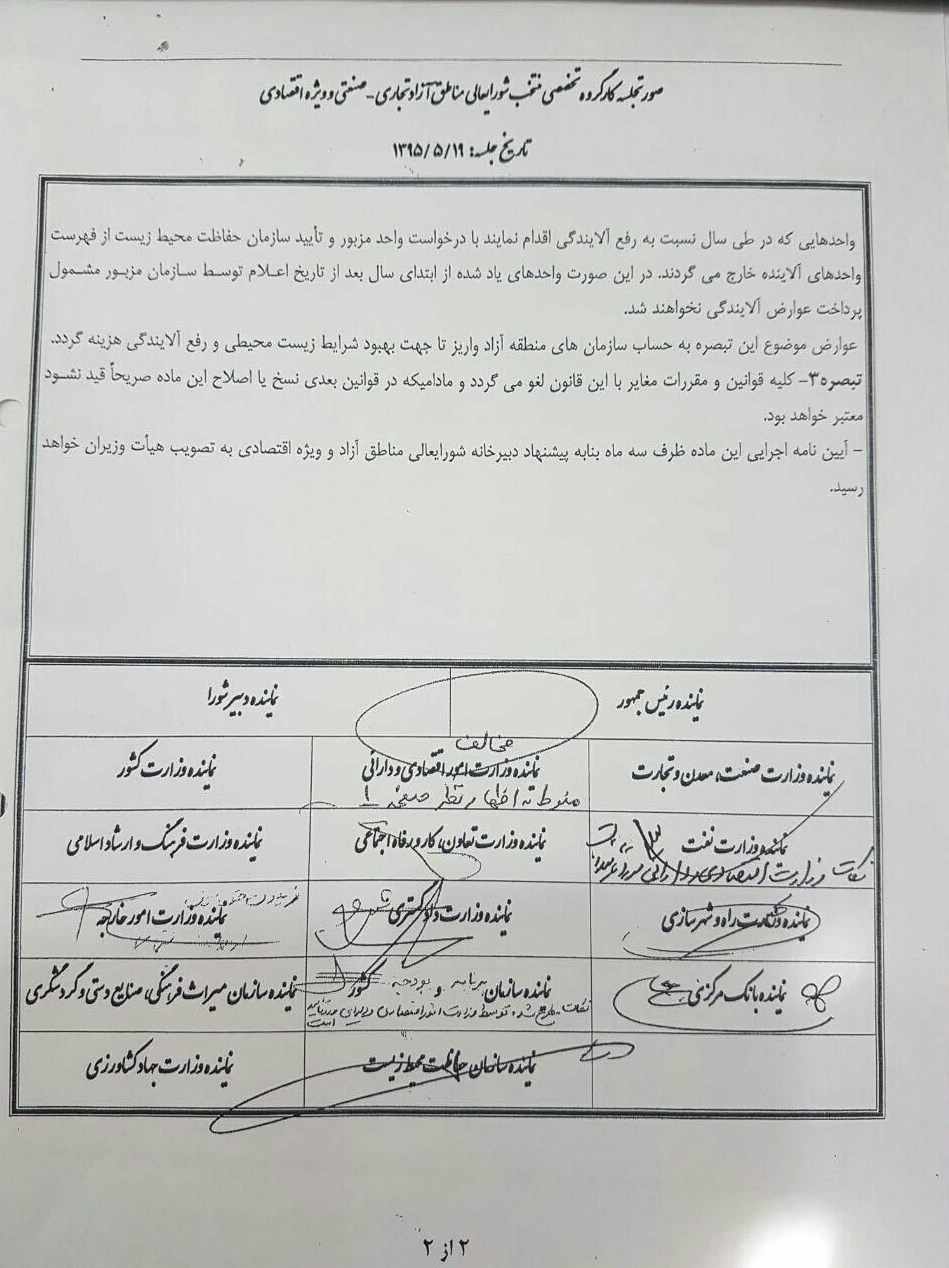 صورتجلسه کارگروه تخصصی منتخب شورایعالی مناطق آزاد تجاری - صنعتی و ویژه اقتصادی
تاریخ جلسه: ۱۳۹۵/۵/۱۹
واحدهایی که در طی سال نسبت به رفع آلایندگی اقدام نمایند با درخواست واحد مزبور و تأیید سازمان حفاظت محیط زیست از فهرست
واحدهای آلاینده خارج می گردند. در این صورت واحدهای یاد شده از ابتدای سال بعد از تاریخ اعلام توسط سازمان مزبور مشمول
پرداخت عوارض آلایندگی نخواهند شد.
عوارض موضوع این تبصره به حساب سازمان های منطقه آزاد واریز تا جهت بهبود شرایط زیست محیطی و رفع آلایندگی هزینه گردد.
تبصره۳- کلیه قوانین و مقررات مغایر با این قانون لغو می گردد و مادامیکه در قوانین بعدی نسخ یا اصلاح این ماده صریحاً قید نشود
معتبر خواهد بود.
- آیین نامه اجرایی این ماده ظرف سه ماه بنابه پیشنهاد دبیرخانه شورایعالی مناطق آزاد و ویژه اقتصادی به تصویب هیأت وزیران خواهد
رسید.
نماینده رئیس جمهور
نماینده دبیر شورا
نماینده وزارت صنعت، معدن و تجارت
مخالف
نماینده وزارت امور اقتصادی و دارائی
منوط به اظهار نظر صفحه ۱
نماینده وزارت کشور
نماینده وزارت نفت
نکات وزارت اقتصادی و دارائی مورد
نماینده وزارت تعاون، کار و رفاه اجتماعی
نماینده وزارت فرهنگ و ارشاد اسلامی
نماینده وزارت راه و شهرسازی
نماینده وزارت دادگستری
نماینده وزارت امور خارجه
نماینده بانک مرکزی
نماینده سازمان برنامه و بودجه کشور
نکات مطرح شده توسط وزارت امور اقتصادی و دارایی مورد تایید
است
نماینده سازمان میراث فرهنگی، صنایع دستی و گردشگری
نماینده سازمان حفاظت محیط زیست
نماینده وزارت جهاد کشاورزی
۲ از ۲